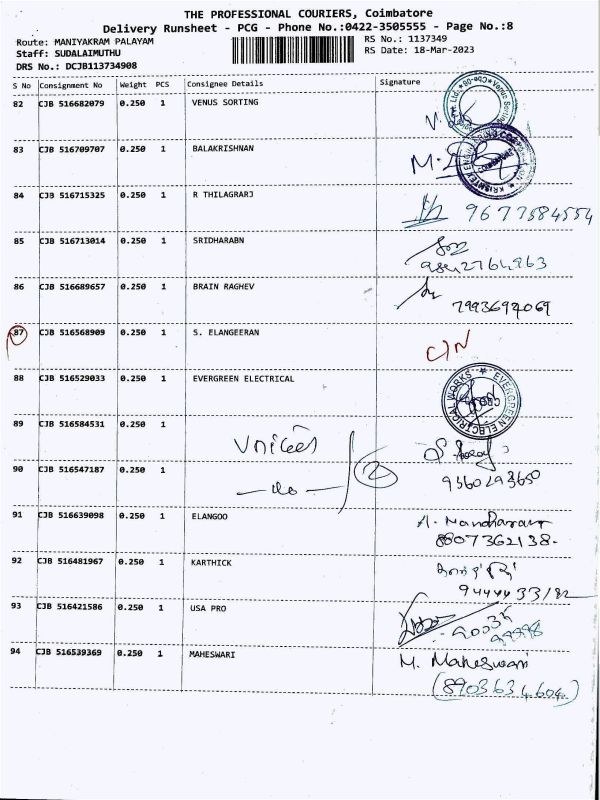 THE PROFESSIONAL COURIERS, Coimbatore
Delivery Runsheet - PCG - Phone No.:0422-3505555 - Page No.:8
Route: MANIYAKRAM PALAYAM
RS No.: 1137349
Staff: SUDALAIMUTHU
RS Date: 18-Mar-2023
DRS No.: DCJB113734908
S No Consignment No Weight PCS Consignee Details Signature
82 CJB 516682079 0.250 1 VENUS SORTING
83 CJB 516709707 0.250 1 BALAKRISHNAN
84 CJB 516715325 0.250 1 R THILAGRARJ 9677584554
85 CJB 516713014 0.250 1 SRIDHARABN
86 CJB 516689657 0.250 1 BRAIN RAGHEV
87 CJB 516568909 0.250 1 S. ELANGEERAN C/N
88 CJB 516529033 0.250 1 EVERGREEN ELECTRICAL EVERGREEN ELECTRICAL WORKS
89 CJB 516584531 0.250 1
90 CJB 516547187 0.250 1 2 9360293650
91 CJB 516639098 0.250 1 ELANGOO
8807362138.
92 CJB 516481967 0.250 1 KARTHICK
93 CJB 516421586 0.250 1 USA PRO
94 CJB 516539369 0.250 1 MAHESWARI M. Maheswari
(8903634604)